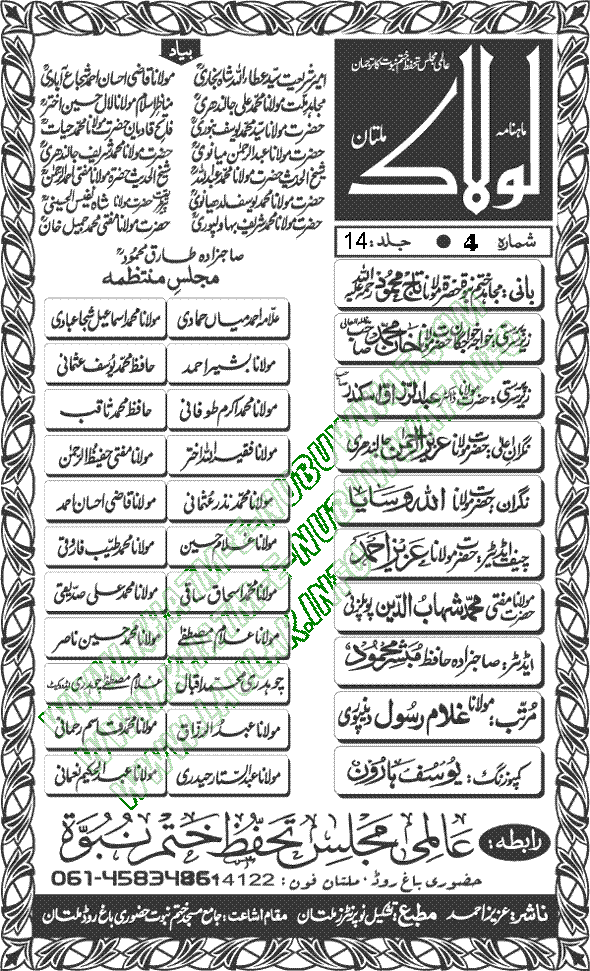 عالمی مجلس تحفظ ختم نبوت کا ترجمان
ماہنامہ
لولاک
ملتان
شمارہ 4 ● جلد: 14
بانی: مجاہد ختم نبوۃ حضرت مولانا تاج محمود رحمۃ اللہ علیہ
زیر سرپرستی: خواجہ خواجگان حضرت مولانا خان محمد صاحب
زیر سرپرستی: حضرت مولانا ڈاکٹر عبدالرزاق اسکندر صاحب
نگران اعلیٰ: حضرت مولانا عزیز الرحمٰن جالندھری
نگران: حضرت مولانا اللہ وسایا
چیف ایڈیٹر: حضرت مولانا عزیز احمد
حضرت مولانا مفتی محمد شہاب الدین پوپلزئی
ایڈیٹر: صاحبزادہ حافظ مبشر محمود
مرتب: مولانا غلام رسول دینپوری
کمپوزنگ: یوسف ہارون
بیاد
امیر شریعت سید عطاء اللہ شاہ بخاری مولانا قاضی احسان احمد شجاع آبادی
مجاہد ملت مولانا محمد علی جالندھری مناظر اسلام مولانا لال حسین اختر
حضرت مولانا سید محمد یوسف بنوری فاتح قادیان حضرت مولانا محمد حیات
حضرت مولانا عبدالرحمٰن میانوی حضرت مولانا محمد شریف جالندھری
شیخ الحدیث حضرت مولانا محمد عبداللہ شیخ الحدیث حضرت مولانا مفتی احمد الرحمٰن
حضرت مولانا محمد یوسف لدھیانوی حضرت مولانا شاہ نفیس الحسینی
حضرت مولانا محمد شریف بہاولپوری حضرت مولانا مفتی محمد جمیل خان
صاحبزادہ طارق محمود
مجلس منتظمہ
علامہ احمد میاں حمادی مولانا محمد اسماعیل شجاعبادی
مولانا بشیر احمد حافظ محمد یوسف عثمانی
مولانا محمد اکرم طوفانی حافظ محمد ثاقب
مولانا فقیر اللہ اختر مولانا مفتی حفیظ الرحمٰن
مولانا محمد نذر عثمانی مولانا قاضی احسان احمد
مولانا غلام حسین مولانا محمد طیب فاروقی
مولانا محمد اسحاق ساقی مولانا محمد علی صدیقی
مولانا غلام مصطفےٰ مولانا محمد حسین ناصر
چوہدری محمد اقبال غلام مصطفےٰ چوہدری ایڈووکیٹ
مولانا عبدالرزاق مولانا محمد قاسم رحمانی
مولانا عبدالستار حیدری مولانا عبدالحکیم نعمانی
رابطہ: عالمی مجلس تحفظ ختم نبوۃ
حضوری باغ روڈ، ملتان فون: 061-4583486
ناشر: عزیز احمد مطبع: تشکیل نو پرنٹرز ملتان مقام اشاعت: جامع مسجد ختم نبوت حضوری باغ روڈ ملتان